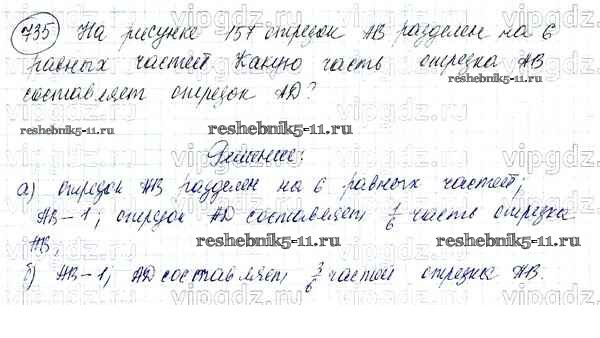 735 На рисунке 157 отрезок АВ разделен на 6
равных частей. Какую часть отрезка АВ
составляет отрезок AD?
reshebnik5-11.ru
reshebnik5-11.ru
reshebnik5-11.ru
Решение:
а) отрезок АВ разделен на 6 равных частей;
АВ-1; отрезок AD составляет 1/6 часть отрезка
АВ;
reshebnik5-11.ru
reshebnik5-11.ru
б) АВ-1; AD составляет /6 частей отрезка АВ.
vipgdz.ru